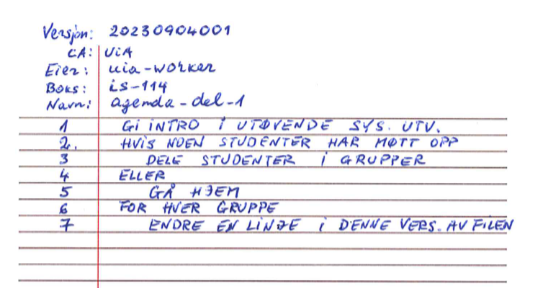 Versjon: 20230904001
CA: UiA
Eier: uia-worker
Boks: is-114
Navn: agenda-del-1
1 GI INTRO I UTØVENDE SYS. UTV.
2. HVIS NOEN STUDENTER HAR MØTT OPP
3 DELE STUDENTER I GRUPPER
4 ELLER
5 GÅ HJEM
6 FOR HVER GRUPPE
7 ENDRE EN LINJE I DENNE VERS. AV FILEN